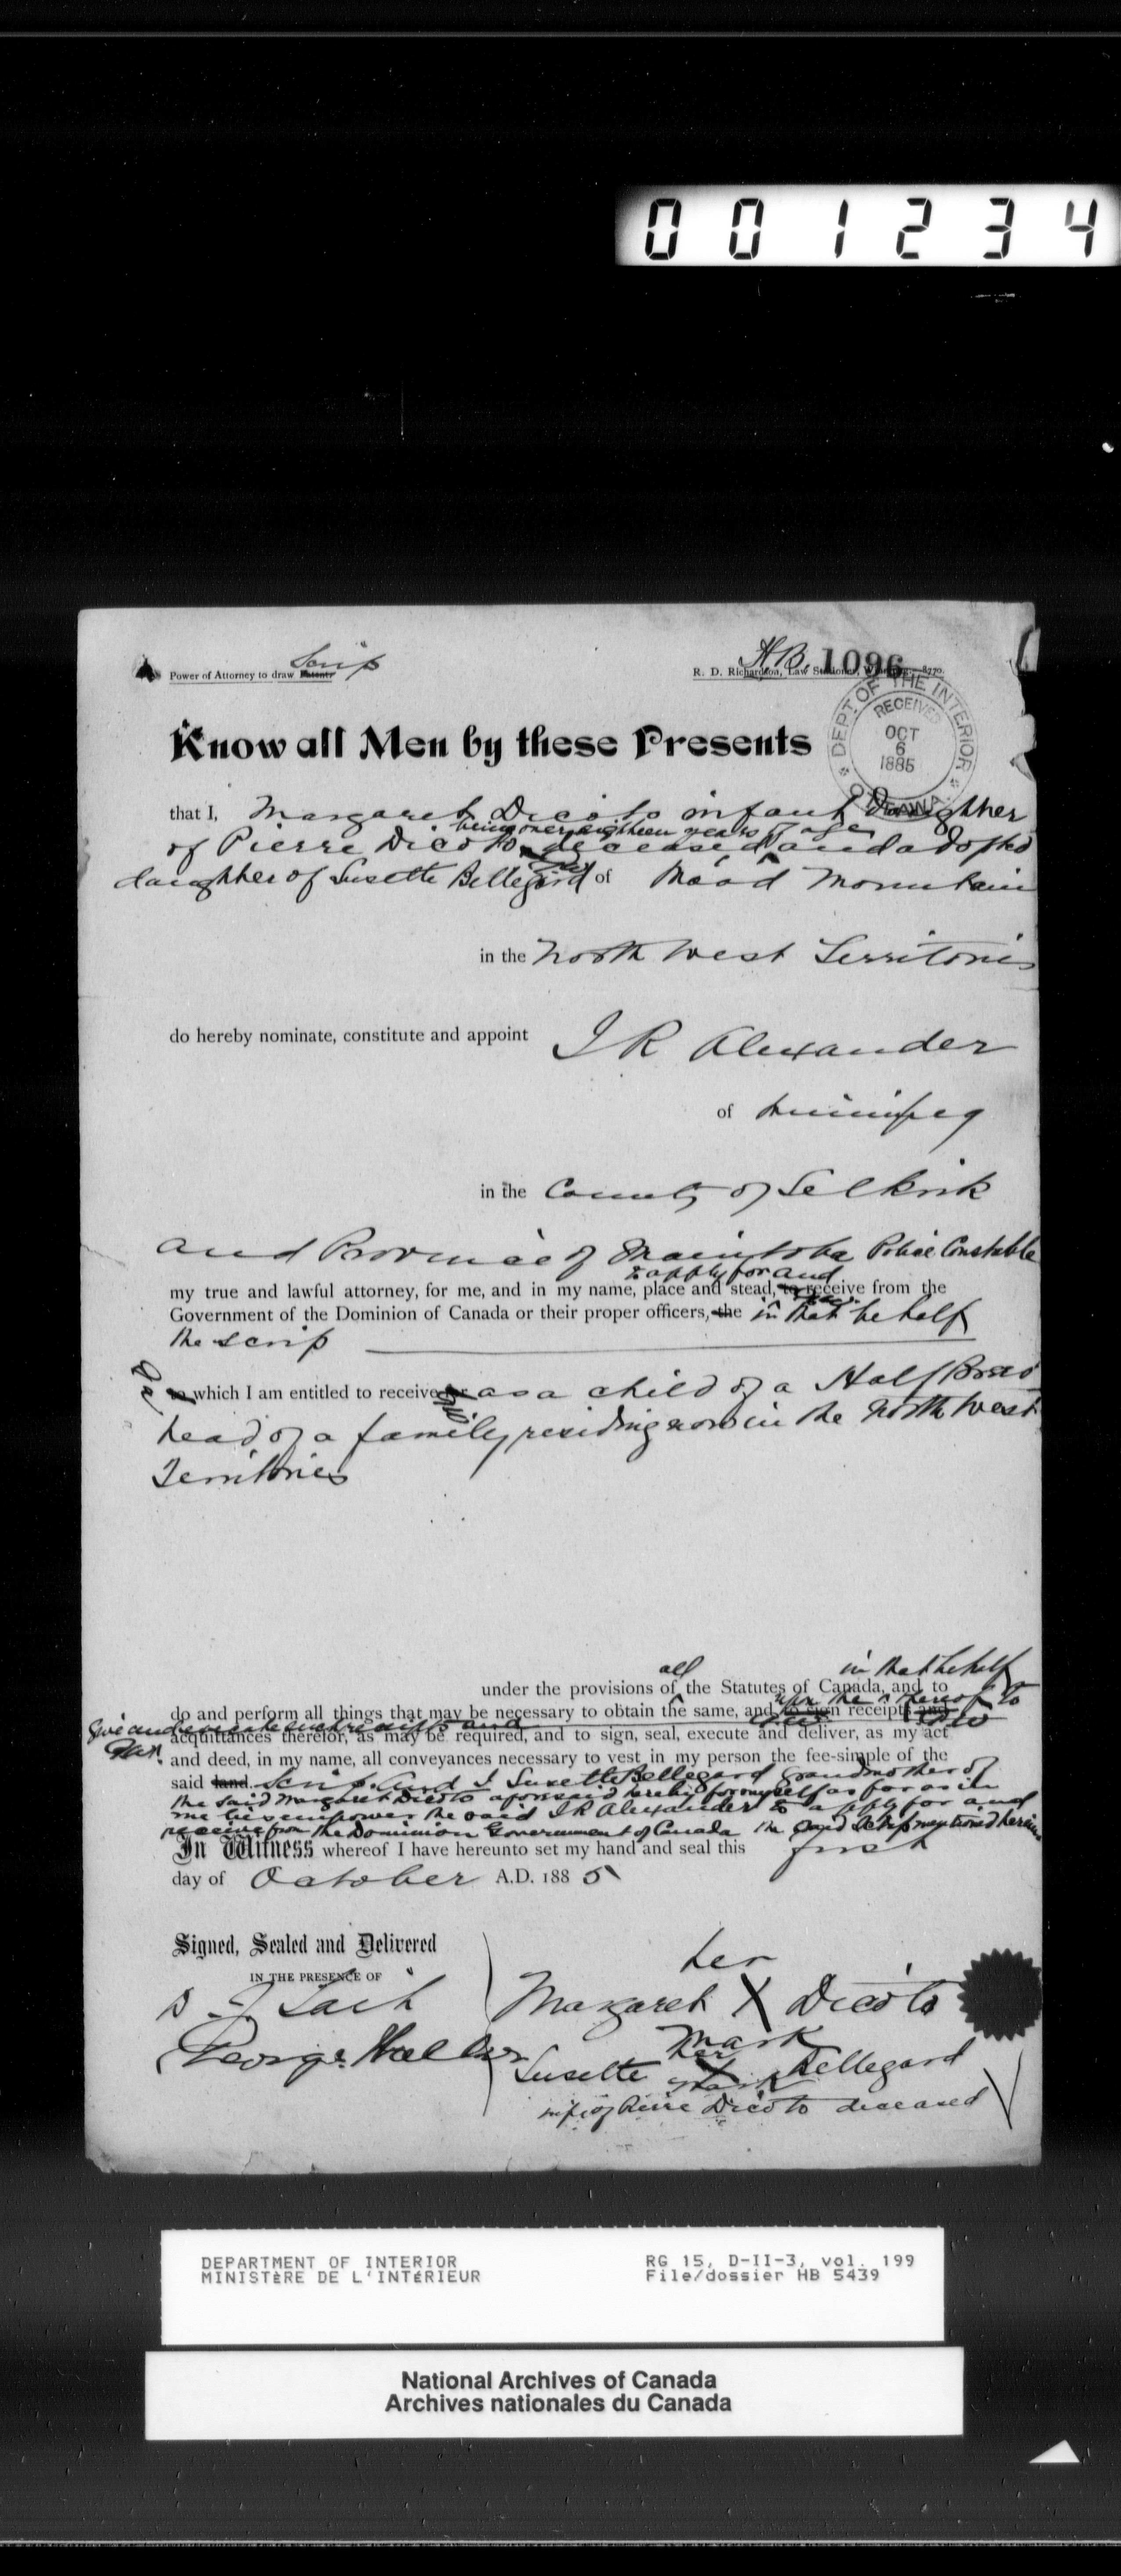 001234
Scrip
H.B. 1096
Power of Attorney to draw Patent
R. D. Richardson, Law Stationer, Winnipeg.
DEPT. OF THE INTERIOR
RECEIVED
OCT
6
1885
OTTAWA
Know all Men by these Presents
that I, Margaret Dicoto infant Daughter
being over eighteen years of age
of Pierre Dicoto deceased and adopted
daughter of Susette Bellegard of Wood Mountain
in the North West Territories
do hereby nominate, constitute and appoint J R Alexander
of Winnipeg
in the County of Selkirk
and Province of Manitoba Police Constable
to apply for and
my true and lawful attorney, for me, and in my name, place and stead, to receive from the
Government of the Dominion of Canada or their proper officers, the in that behalf
the scrip
to which I am entitled to receive for as a child of a Half Breed
head of a family residing now in the North West
Territories
all in that behalf
under the provisions of the Statutes of Canada, and to
upon the thereof to
do and perform all things that may be necessary to obtain the same, and to sign receipts and
give and execute such receipts and
acquittances therefor, as may be required, and to sign, seal, execute and deliver, as my act
and deed, in my name, all conveyances necessary to vest in my person the fee-simple of the
said land. Scrip. And I Susette Bellegard Grandmother of
the said Margaret Dicoto aforesaid hereby for myself as far as in
me lies empower the said J R Alexander to apply for and
receive from the Dominion Government of Canada the said Scrip mentioned herein
In Witness whereof I have hereunto set my hand and seal this first
day of October A.D. 1885
Signed, Sealed and Delivered
IN THE PRESENCE OF
her
Margaret X Dicoto
mark
George
her
Susette X Bellegard
mark
wife of Pierre Dicoto deceased
DEPARTMENT OF INTERIOR
MINISTÈRE DE L'INTÉRIEUR
RG 15, D-II-3, vol. 199
File/dossier HB 5439
National Archives of Canada
Archives nationales du Canada